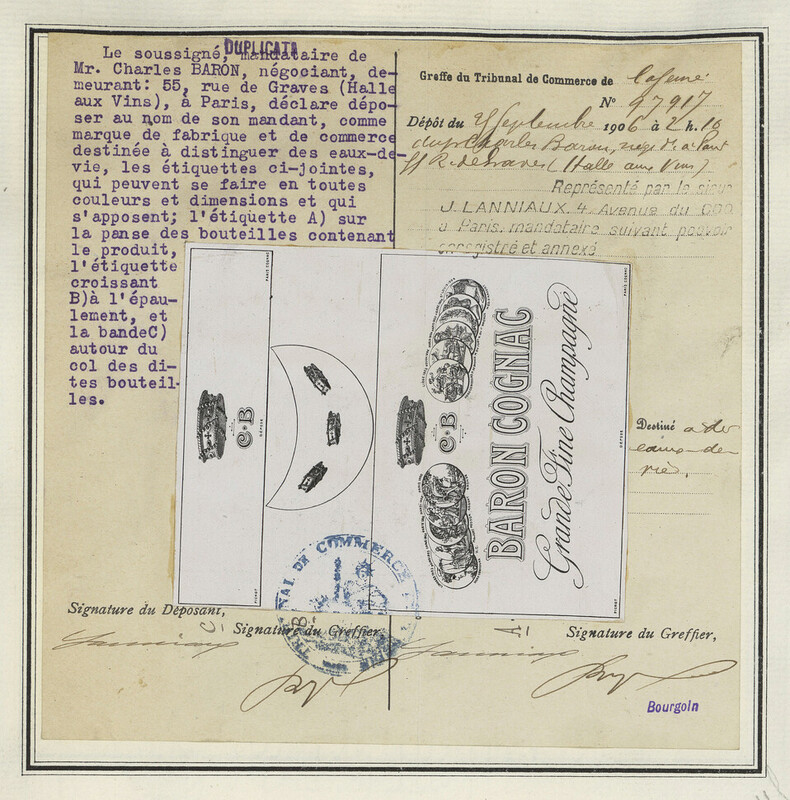 DUPLICATA
Le soussigné, mandataire de
Mr. Charles BARON, négociant, de-
meurant: 55, rue de Graves (Halle
aux Vins), à Paris, déclare dépo-
ser au nom de son mandant, comme
marque de fabrique et de commerce
destinée à distinguer des eaux-de-
vie, les étiquettes ci-jointes,
qui peuvent se faire en toutes
couleurs et dimensions et qui
s'apposent; l'étiquette A) sur
la panse des bouteilles contenant
le produit,
l'étiquette
croissant
B)à l'épau-
lement, et
la bandeC)
autour du
col des di-
tes bouteil-
les.
Greffe du Tribunal de Commerce de
N° 97917
Dépôt du Septembre 1906 à 2 h. 10
Charles Baron, à
R. de Graves (Halle aux Vins)
Représenté par le sieur
J. LANNIAUX. 4 Avenue du
a Paris. mandataire suivant pouvoir
enregistré et annexé
C B
DÉPOSÉ
C B
BARON COGNAC
Grande Fine Champagne
DÉPOSÉ
Destiné a des
eaux-de-
vie.
TRIBUNAL DE COMMERCE
Signature du Déposant,
C
B
Signature du Greffier,
A
Signature du Greffier,
Bourgoin